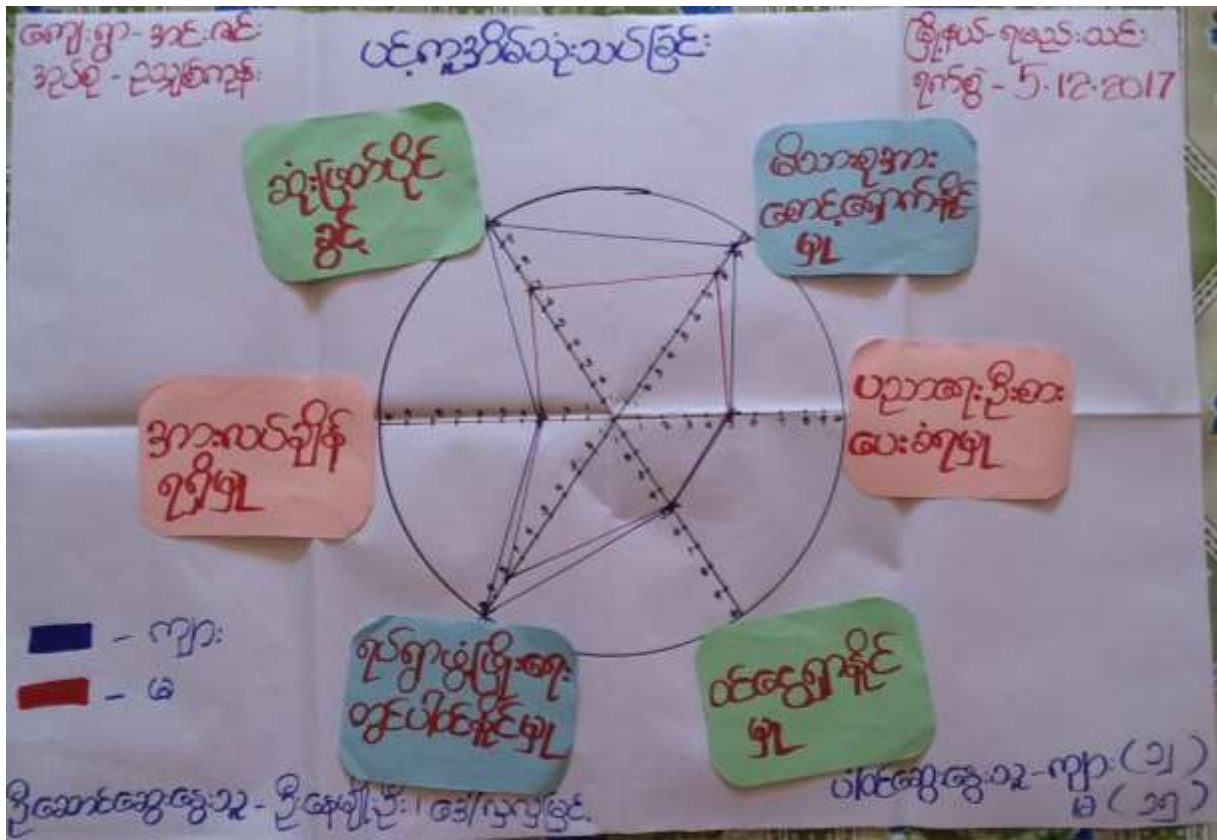 ကျေးရွာ - အင်းဇင်း
အုပ်စု - ဥသျှစ်ကုန်း
ပင့်ကူအိမ်သုံးသပ်ခြင်း
မြို့နယ် - ရမည်းသင်း
ရက်စွဲ - 5.12.2017
ဆုံးဖြတ်ပိုင်
ခွင့်
မိသားစုအား
စောင့်ရှောက်နိုင်
မှု
အားလပ်ချိန်
ရရှိမှု
ပညာရေးဦးစား
ပေးခံရမှု
ရပ်ရွာဖွံ့ဖြိုးရေး
တွင်ပါဝင်နိုင်မှု
ဝင်ငွေရှာနိုင်
မှု
- ကျား
- မ
ဦးဆောင်ဆွေးနွေးသူ - ဦးနေမျိုးဦး၊ ဒေါ်လှလှမြင့်
ပါဝင်ဆွေးနွေးသူ - ကျား (၁၂)
မ (၁၅)